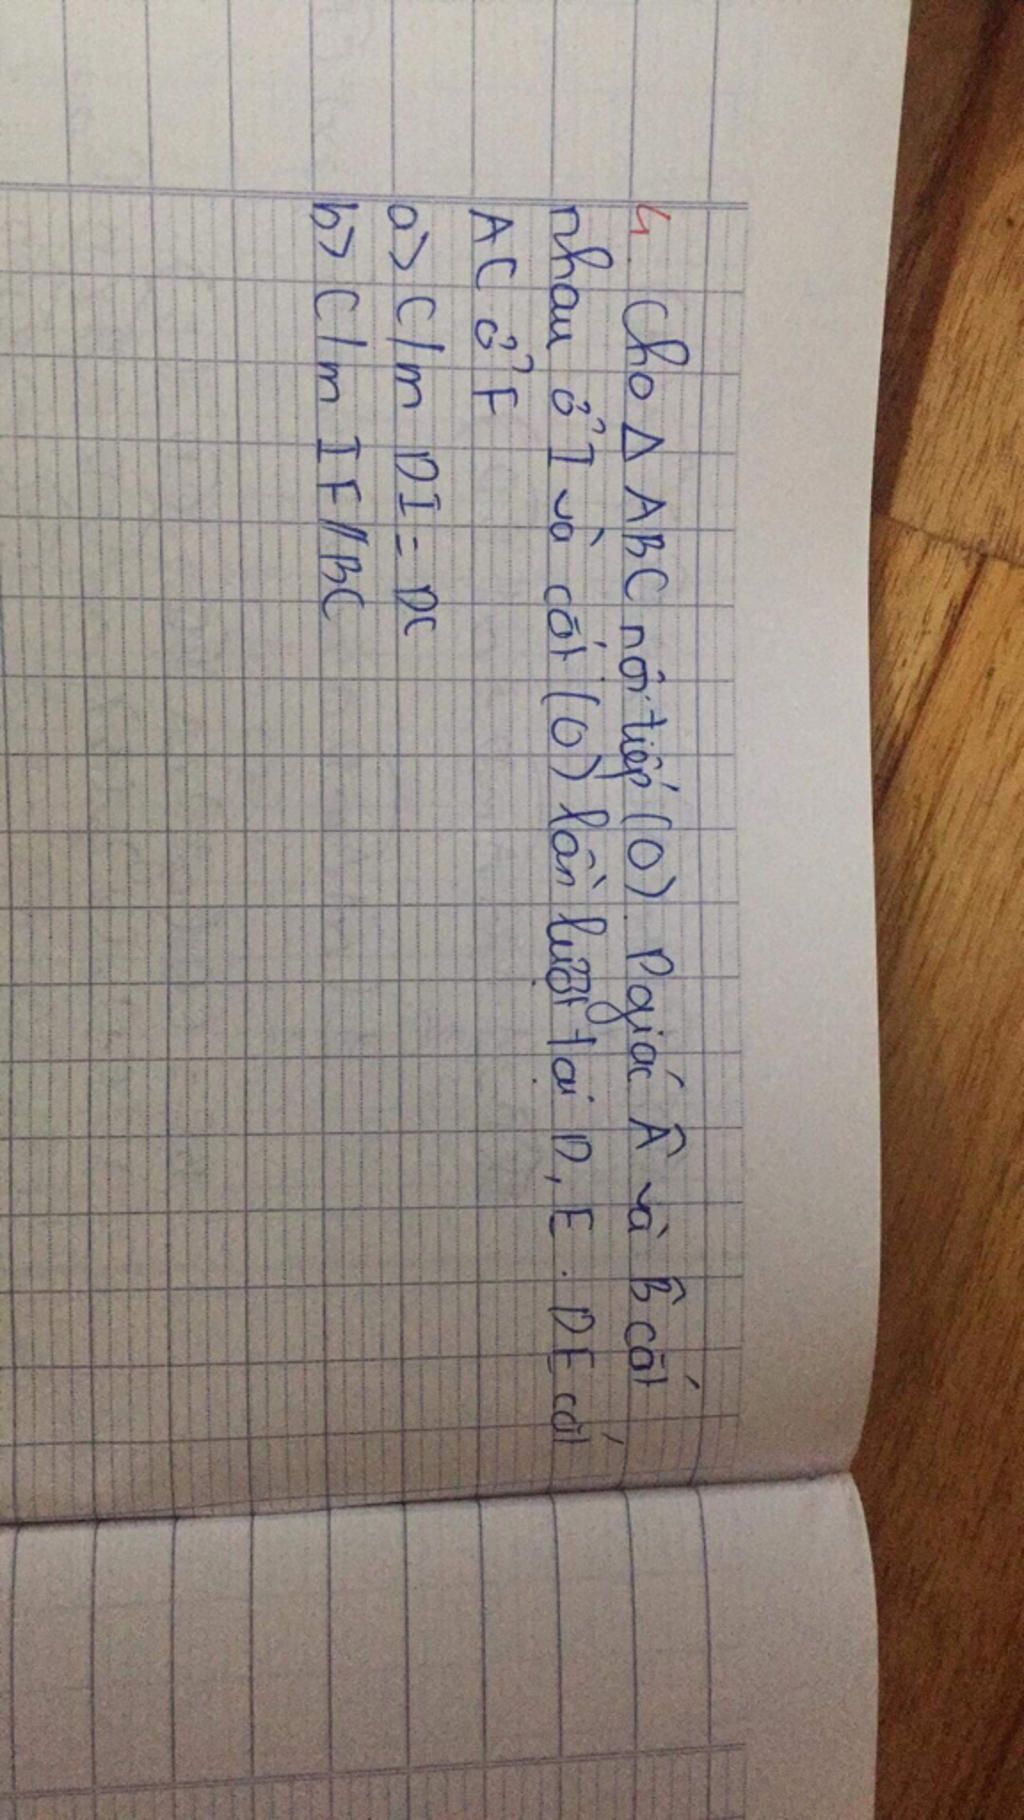 4. Cho Δ ABC nội tiếp (O). Pgiác Â và B̂ cắt
nhau ở I và cắt (O) lần lượt tại D, E. DE cắt
AC ở F
a> C/m DI = DC
b> C/m IF // BC